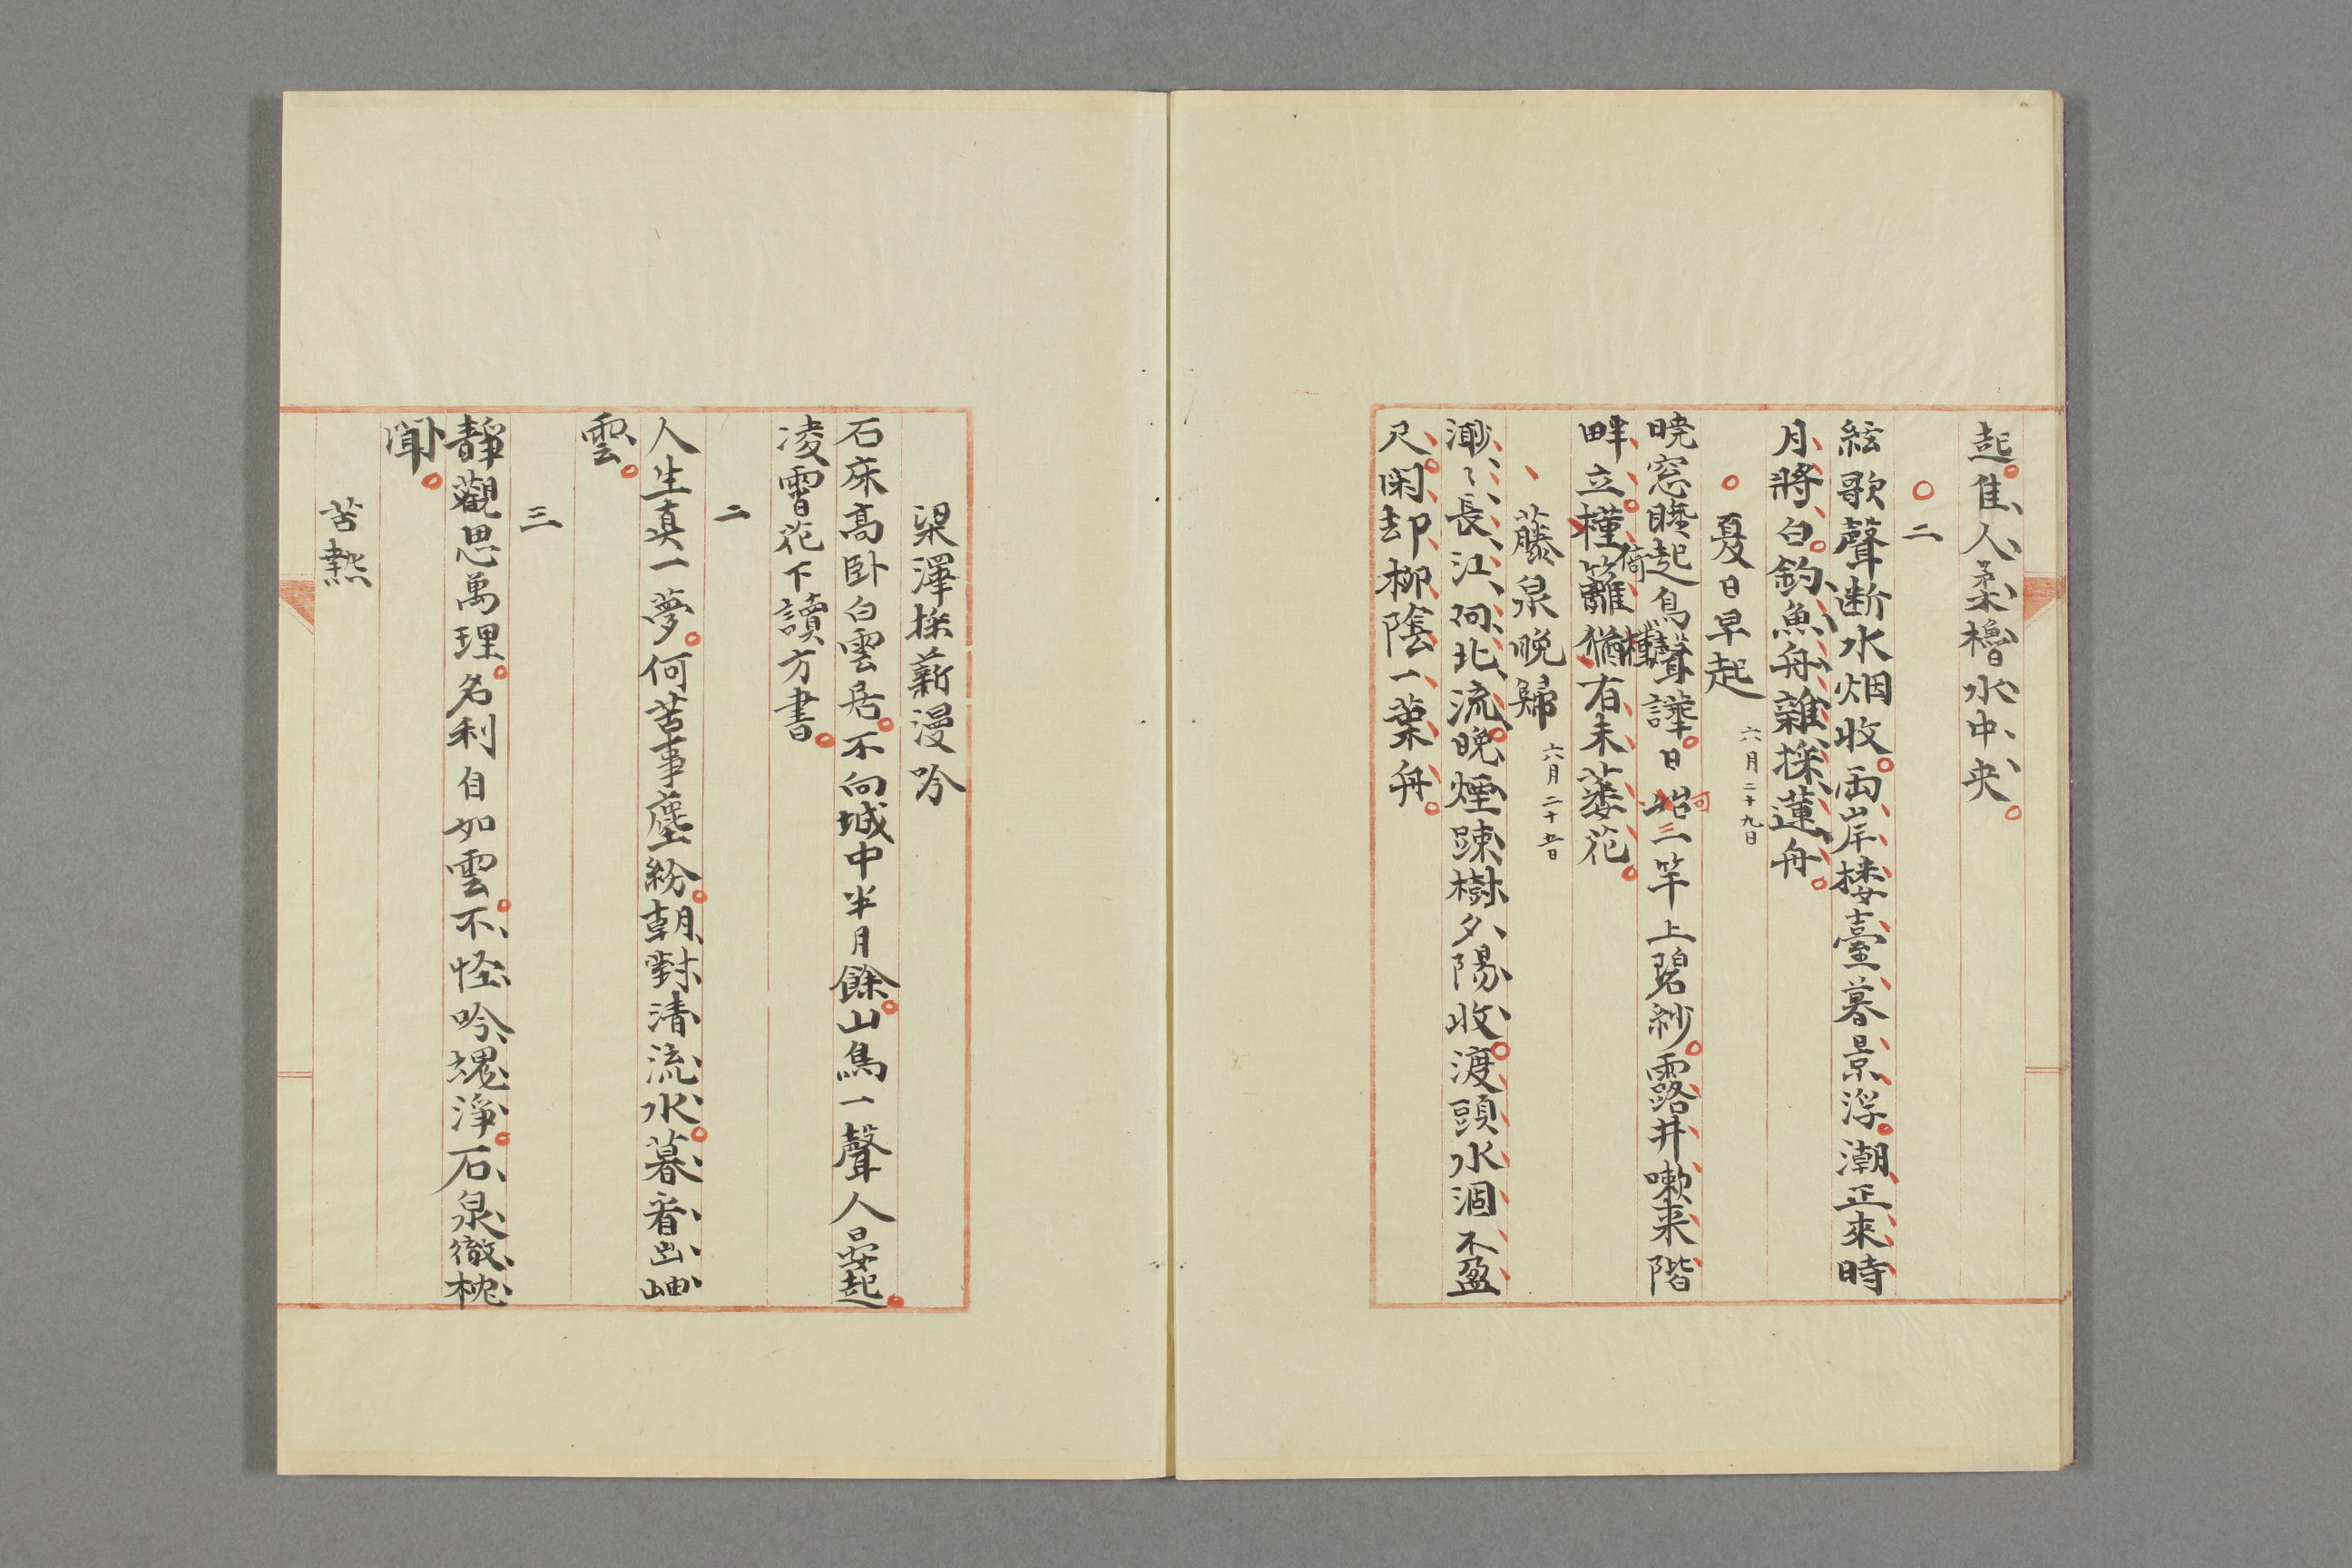 起佳人柔櫓水中央
二
絃歌聲断水烟收両岸楼臺暮景浮潮正來時
月將白釣魚舟雜採蓮舟
夏日早起 六月二十九日
暁窓睡起鳥聲譁日始三竿上碧紗露井嗽来階
可
畔立槿籬猶有未蔞花
倚槿
藤泉晩歸 六月二十五日
渺〻長江向北流晩煙踈樹夕陽收渡頭水涸不盈
尺閑却柳陰一葉舟
梁澤採薪漫吟
石床高臥白雲居不向城中半月餘山鳥一聲人晏起
凌霄花下讀方書
二
人生真一夢何苦事塵紛朝對清流水暮看出岫
雲
三
靜觀思萬理名利自如雲不怪吟魂淨石泉徹枕
聞
苦熱